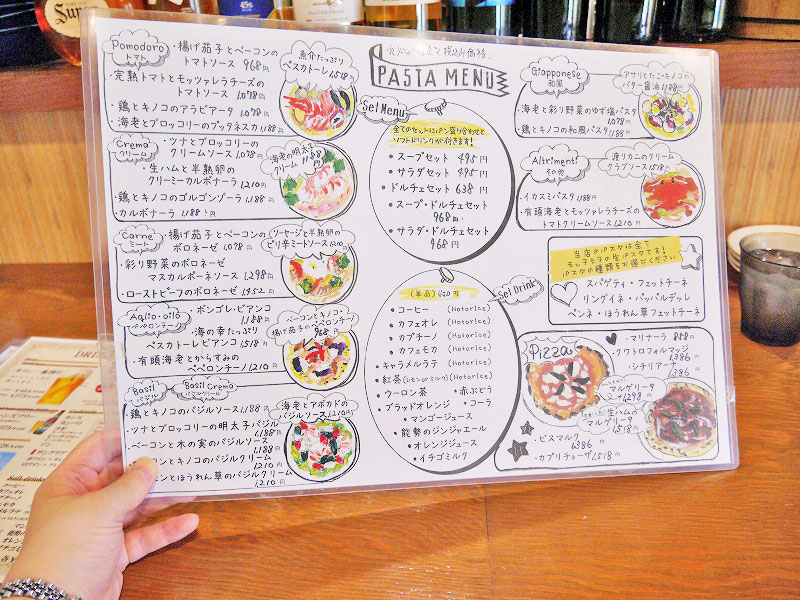 PASTA MENU
Pomodoro
トマト
・揚げ茄子とベーコンの
トマトソース 968円
・完熟トマトとモッツァレラチーズの
トマトソース
1,078円
・鶏とキノコのアラビアータ 1,078円
・海老とブロッコリーのプッタネスカ 1,188円
魚介たっぷり
ペスカトーレ 1,518円
Crema
クリーム
・ツナとブロッコリーの
クリームソース 1,078円
・生ハムと半熟卵の
クリーミーカルボナーラ 1,210円
・鶏とキノコのゴルゴンゾーラ 1,188円
・カルボナーラ 1,188円
海老の明太子
クリーム 1,188円
Carne
ミート
・揚げ茄子とベーコンの
ボロネーゼ 1,078円
・彩り野菜のボロネーゼ
マスカルポーネソース 1,298円
・ローストビーフのボロネーゼ 1,452円
ソーセージと半熟卵の
ピリ辛ミートソース 1,210円
Aglio-olio
ペペロンチーノ
・ボンゴレ・ビアンコ
1,188円
・海の幸たっぷり
ペスカトーレビアンコ 1,518円
・有頭海老とからすみの
ペペロンチーノ 1,210円
ベーコンとキノコ・
揚げ茄子のペペロンチーノ
968円
Basil
Basil Crema
・鶏とキノコのバジルソース 1,188円
・ツナとブロッコリーの明太子バジル
1,188円
・ベーコンと木の実のバジルソース
1,188円
コンとキノコのバジルクリーム
1,210円
コンとほうれん草のバジルクリーム
1,210円
海老とアボカドの
バジルソース 1,210円
Set Menu
全てのセットにパン盛り合わせと
ソフトドリンクが付きます!
・スープセット 495円
・サラダセット 495円
・ドルチェセット 638円
・スープ・ドルチェセット
968円
・サラダ・ドルチェセット
968円
Set Drink
・コーヒー (Hot or Ice)
・カフェオレ (Hot or Ice)
・カプチーノ (Hot or Ice)
・カフェモカ (Hot or Ice)
・キャラメルラテ (Hot or Ice)
・紅茶(レモン or ミルク) (Hot or Ice)
・ウーロン茶 ・赤ぶどう
・ブラッドオレンジ ・コーラ
・マンゴージュース
・能勢のジンジャエール
・オレンジジュース
・イチゴミルク
Giapponese
和風
アサリとたこ・キノコの
バター醤油 1,188円
・海老と彩り野菜のゆず塩パスタ
1,078円
・鶏とキノコの和風パスタ 1,188円
Altrimenti
その他
渡りカニのクリーム
クラブソース 1,518円
・イカスミパスタ 1,188円
・有頭海老とモッツァレラチーズの
トマトクリームソース 1,210円
当店のパスタは全て
モッチモチの生パスタです!
パスタの種類をお選びください
スパゲティ・フェットチーネ
リングイネ・パッパルデッレ
ペンネ・ほうれん草フェットチーネ
Pizza
・マリナーラ 858円
・クワトロフォルマッジ
1,386円
・シチリアーナ
1,386円
マルゲリータ
1,298円
生ハムの
マルゲリータ
1,518円
・ビスマルク
1,386円
・カプリチョーザ 1,518円